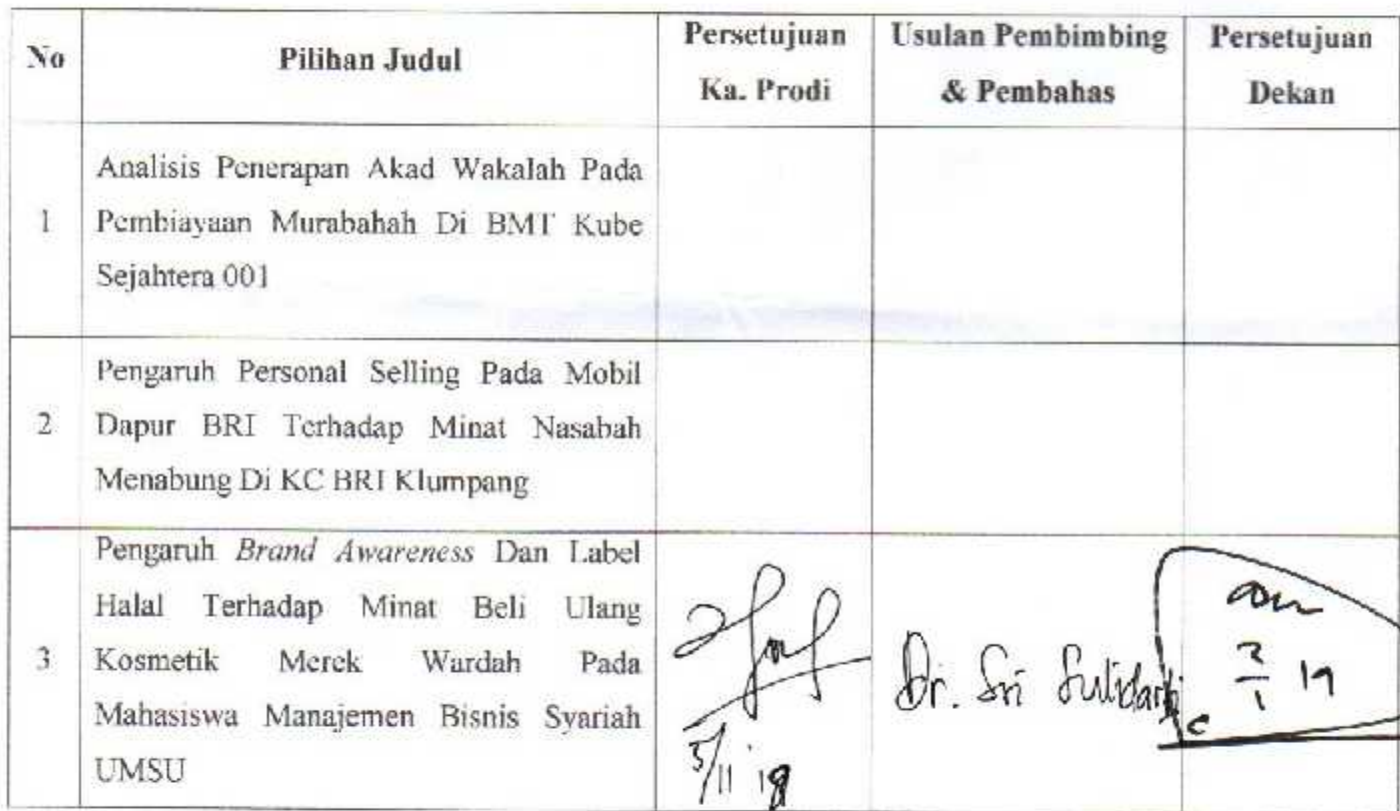 No
Pilihan Judul
Persetujuan
Ka. Prodi
Usulan Pembimbing
& Pembahas
Persetujuan
Dekan
1
Analisis Penerapan Akad Wakalah Pada
Pembiayaan Murabahah Di BMT Kube
Sejahtera 001
2
Pengaruh Personal Selling Pada Mobil
Dapur BRI Terhadap Minat Nasabah
Menabung Di KC BRI Klumpang
3
Pengaruh Brand Awareness Dan Label
Halal Terhadap Minat Beli Ulang
Kosmetik Merek Wardah Pada
Mahasiswa Manajemen Bisnis Syariah
UMSU
5/11 '18
Dr. Sri Sulidarti